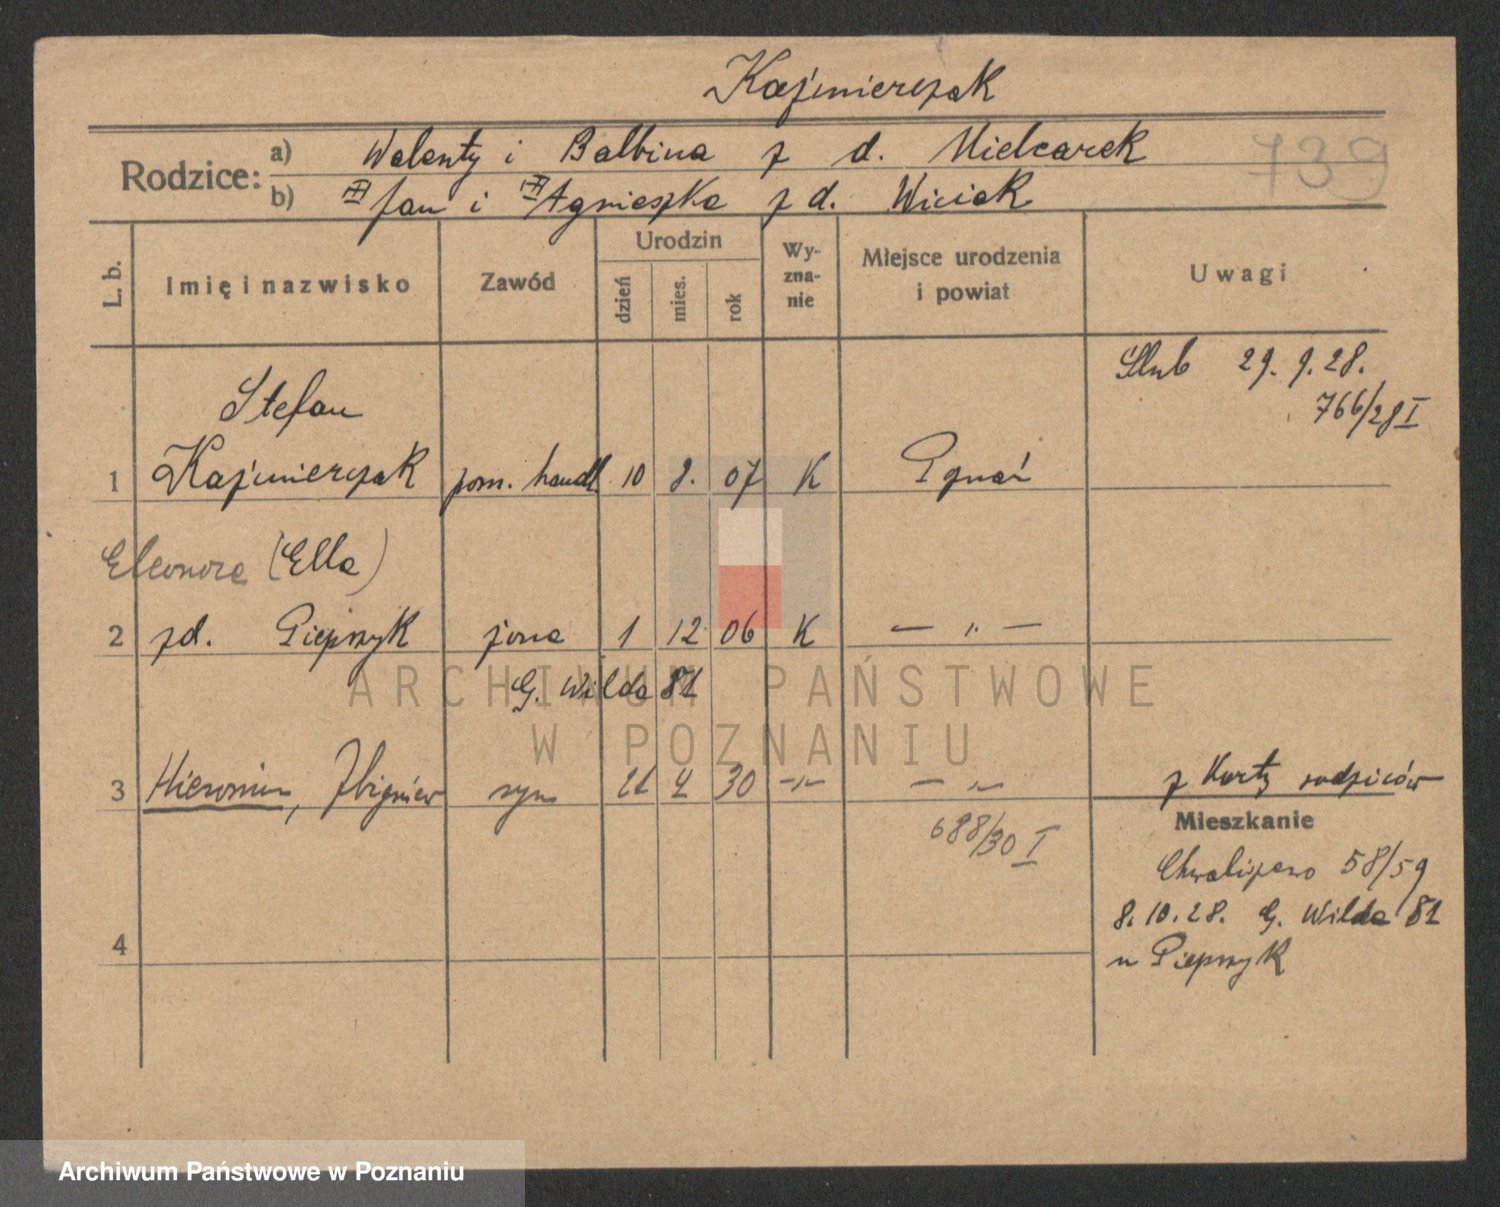 Kaźmierczak
739
Rodzice:
a) Walenty i Balbina z d. Mielcarek
b) Jan i Agnieszka z d. Wiciak
L. b.
Imię i nazwisko
Zawód
Urodzin
dzień
mies.
rok
Wy-
zna-
nie
Miejsce urodzenia
i powiat
Uwagi
Ślub 29. 9. 28.
766/28 I
Stefan
1 Kaźmierczak pom. handl. 10 8. 07 K Poznań
Eleonora (Ella)
2 zd. Pieprzyk żona 1 12 06 K — „ —
G. Wilda 81
3 Hieronim, Zbigniew syn 21 4 30 — „ — — „ —
z Karty rodziców
688/30 I
Mieszkanie
Chwaliszewo 58/59
8. 10. 28. G. Wilda 81
u Pieprzyk
4
ARCHIWUM PAŃSTWOWE
W POZNANIU
Archiwum Państwowe w Poznaniu